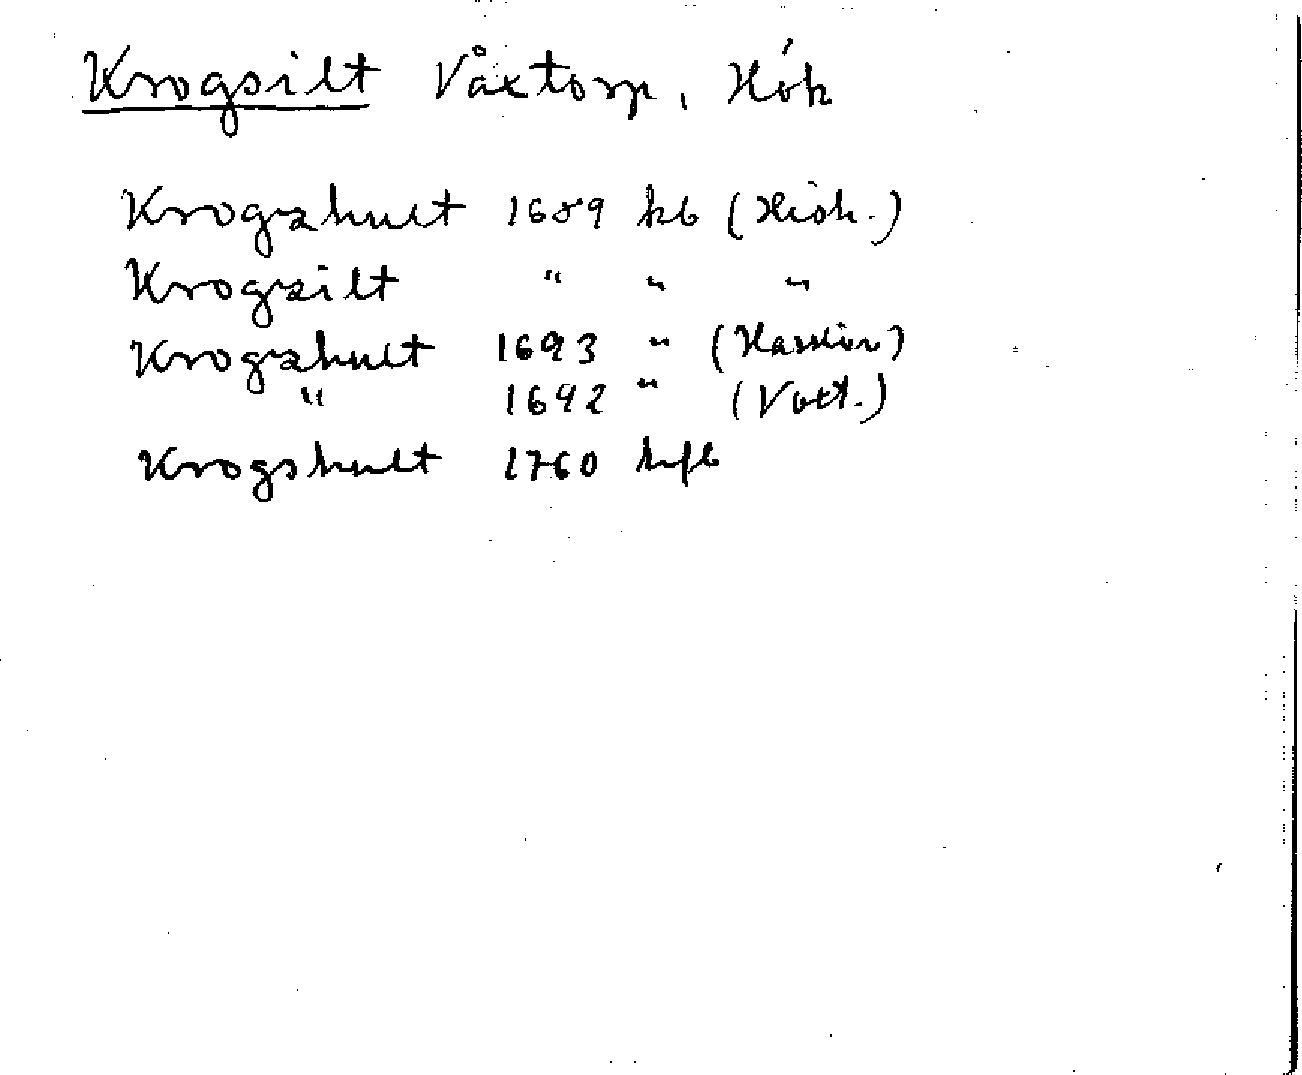 Krogsilt Våxtorp, Hök
Krogzhult 1689 kb (Hish.)
Krogzilt " " "
Krogzhult 1693 " (Hasslöv)
" 1692 " (Voxt.)
Krogshult 1760 hfl